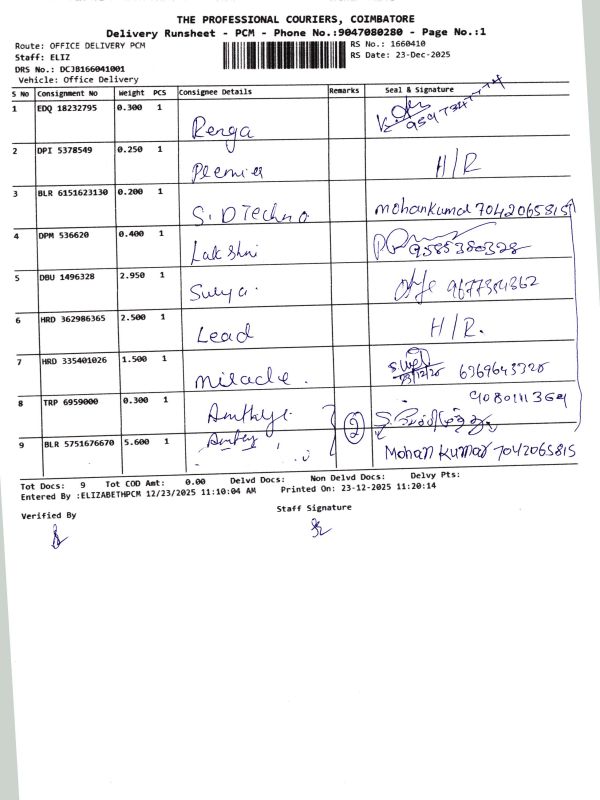 THE PROFESSIONAL COURIERS, COIMBATORE
Delivery Runsheet - PCM - Phone No.:9047080280 - Page No.:1
Route: OFFICE DELIVERY PCM
RS No.: 1660410
Staff: ELIZ
RS Date: 23-Dec-2025
DRS No.: DCJB166041001
Vehicle: Office Delivery
S No Consignment No Weight PCS Consignee Details Remarks Seal & Signature
1 EDQ 18232795 0.300 1
Renga
2 DPI 5378549 0.250 1 H/R
Premier
3 BLR 6151623130 0.200 1
S.D Techno mohankumar 7042065815
4 DPM 536620 0.400 1
Lakshmi 9585380328
5 DBU 1496328 2.950 1
Surya. 9677384362
6 HRD 362986365 2.500 1 H/R.
Lead
7 HRD 335401026 1.500 1
miracle. 23/12/25 6369643328
8 TRP 6959000 0.300 1 9080111369
②
9 BLR 5751676670 5.600 1
Mohan Kumar 7042065815
Tot Docs: 9 Tot COD Amt: 0.00 Delvd Docs: Non Delvd Docs: Delvy Pts:
Entered By :ELIZABETHPCM 12/23/2025 11:10:04 AM Printed On: 23-12-2025 11:20:14
Verified By
Staff Signature